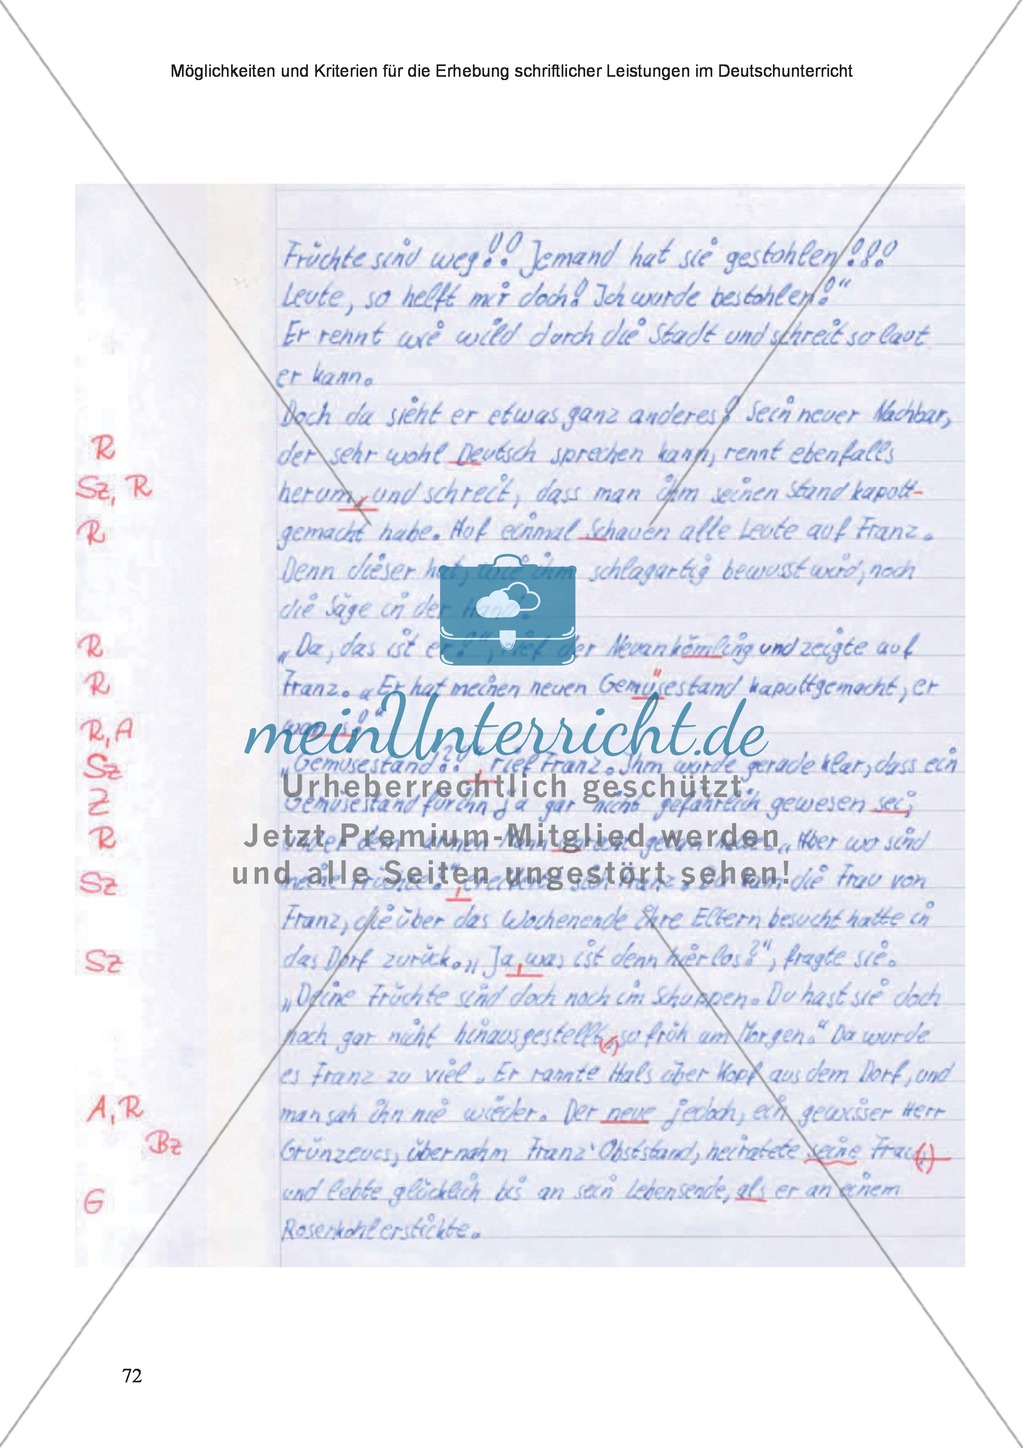 Möglichkeiten und Kriterien für die Erhebung schriftlicher Leistungen im Deutschunterricht
Früchte sind weg!! Jemand hat sie gestohlen!!!
Leute, so helft mir doch! Ich wurde bestohlen!"
Er rennt wie wild durch die Stadt und schreit so laut
er kann.
Doch da sieht er etwas ganz anderes! Sein neuer Nachbar,
R der sehr wohl Deutsch sprechen kann, rennt ebenfalls
Sz, R herum, und schreit, dass man ihm seinen Stand kaputt-
R gemacht habe. Auf einmal Schauen alle Leute auf Franz.
Denn dieser hat, wie ihm schlagartig bewusst wird, noch
die Säge in der Hand!
R „Da, das ist er!", rief der Neuankömling und zeigte auf
R Franz. „Er hat meinen neuen Gemüsestand kaputtgemacht, er
R, A
Sz „Gemüsestand?!", rief Franz. Ihm wurde gerade klar, dass ein
Z Gemüsestand für ihn ja gar nicht gefährlich gewesen sei,
R "Aber wo sind
Sz die Frau von
Franz, die über das Wochenende ihre Eltern besucht hatte in
Sz das Dorf zurück. „Ja, was ist denn hier los?", fragte sie.
„Deine Früchte sind doch noch im Schuppen. Du hast sie doch
noch gar nicht hinausgestellt, so früh am Morgen." Da wurde
es Franz zu viel. Er rannte Hals über Kopf aus dem Dorf, und
A, R man sah ihn nie wieder. Der neue jedoch, ein gewisser Herr
Bz Grünzeugs, übernahm Franz' Obststand, heiratete seine Frau,
G und lebte glücklich bis an sein Lebensende, als er an einem
Rosenkohl erstickte.
meinUnterricht.de
Urheberrechtlich geschützt
Jetzt Premium-Mitglied werden
und alle Seiten ungestört sehen!
72